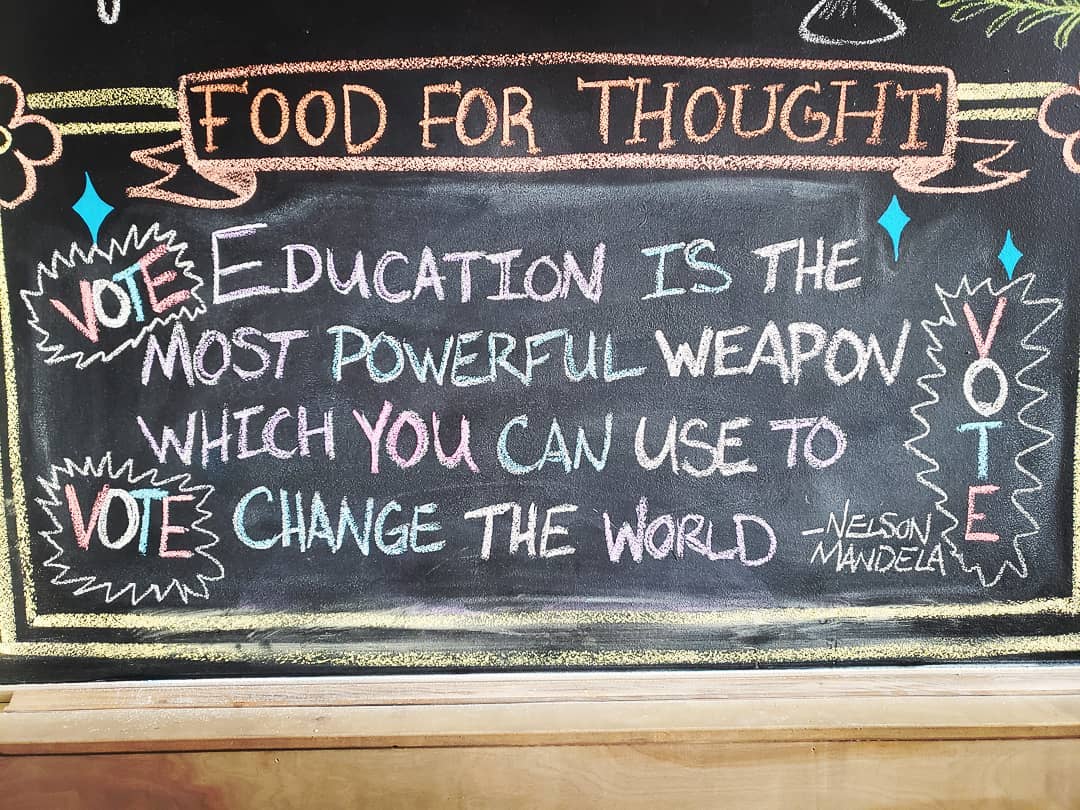 FOOD FOR THOUGHT
VOTE
EDUCATION IS THE
MOST POWERFUL WEAPON
WHICH YOU CAN USE TO
CHANGE THE WORLD
-NELSON
MANDELA
VOTE
VOTE